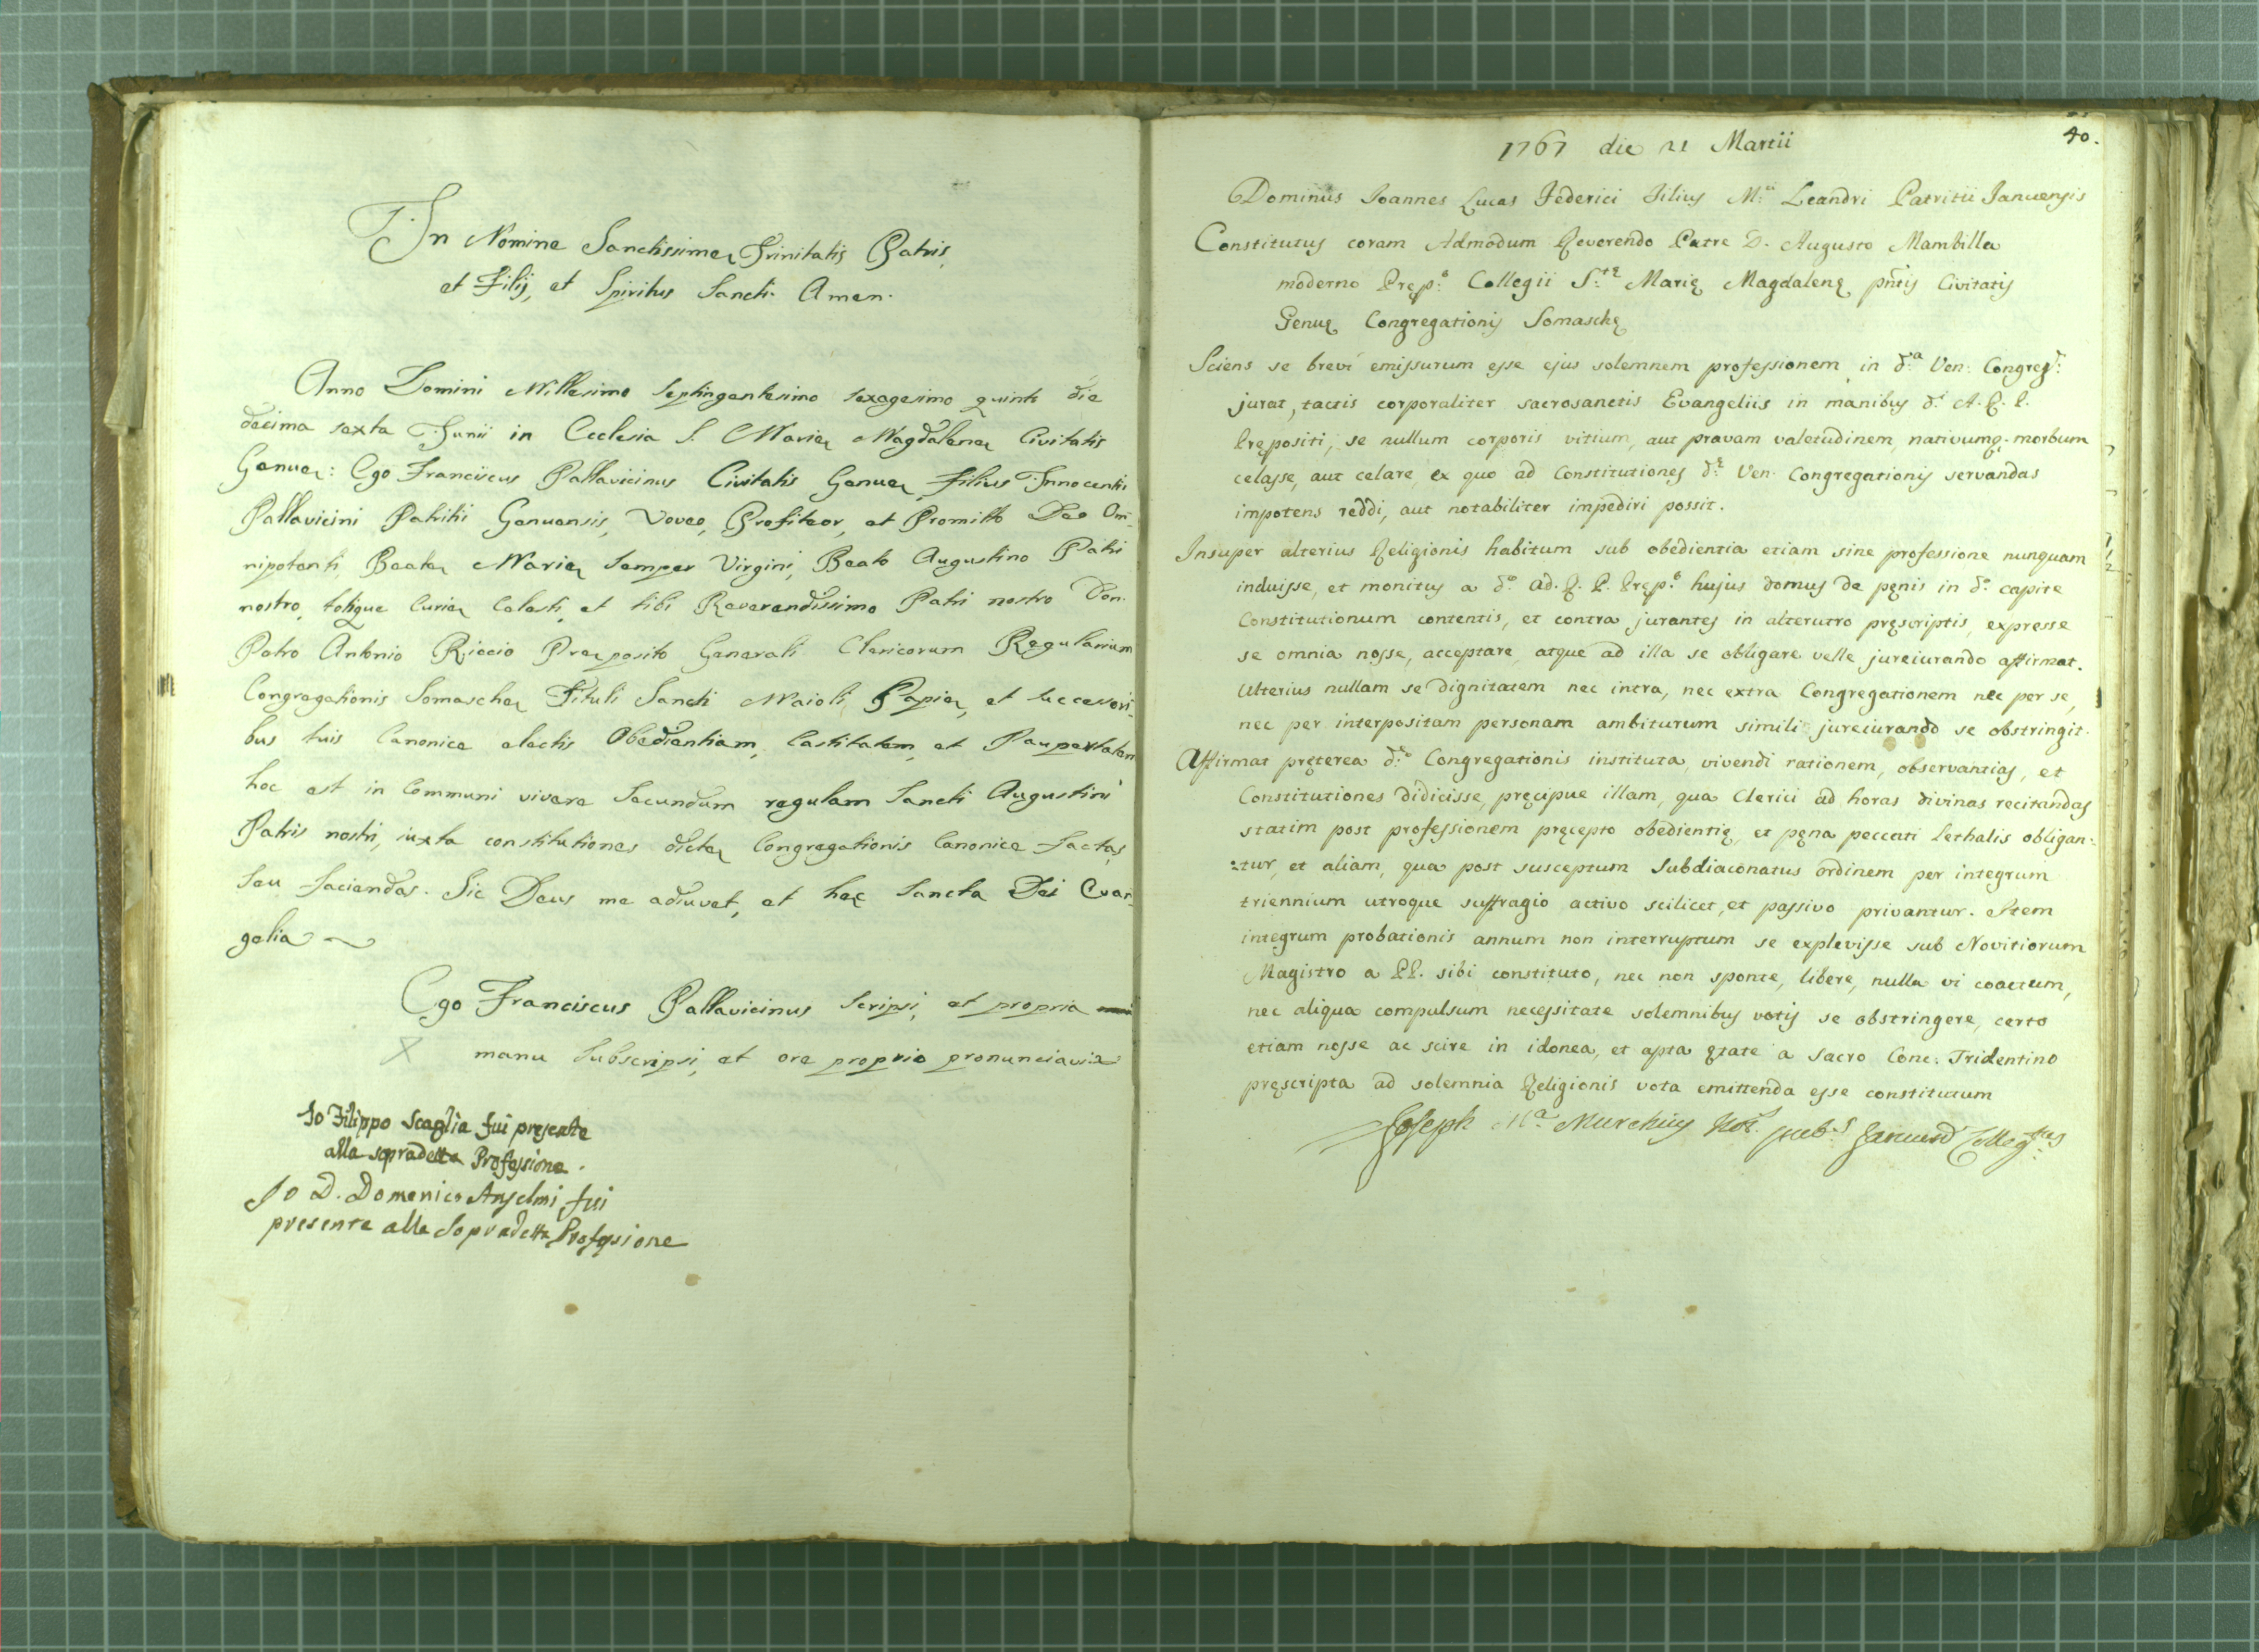 In Nomine Sanctissimæ Trinitatis Patris,
et Filij, et Spiritus Sancti. Amen.
Anno Domini Millesimo septingentesimo sexagesimo quinto die
decima sexta Junii in Ecclesia S. Mariæ Magdalenæ Civitatis
Genuæ: Ego Franciscus Pallavicinus Civitatis Genuæ, filius Innocentii
Pallavicini Patritii Genuensis, Voveo, Profiteor, et Promitto Deo Om-
nipotenti, Beatæ Mariæ semper Virgini, Beato Augustino Patri
nostro, totique Curiæ Celesti, et tibi Reverendissimo Patri nostro Don
Petro Antonio Riccio Præposito Generali Clericorum Regularium
Congregationis Somaschæ Tituli Sancti Maioli Papiæ, et successori-
bus tuis Canonice electis Obedientiam, Castitatem, et Paupertatem
hoc est in Communi vivere Secundum regulam Sancti Augustini
Patris nostri, iuxta constitutiones dictæ Congregationis Canonice factas,
seu faciendas. Sic Deus me adiuvet, et hæc Sancta Dei Evan-
gelia
Ego Franciscus Pallavicinus scripsi, et propria
X manu subscripsi, et ore proprio pronunciavi
Io Filippo Scaglia fui presente
alla sopradetta Professione.
Io D. Domenico Anselmi fui
presente alla Sopradetta Professione
40.
1767 die 21 Martii
Dominus Ioannes Lucas Federici filius M.ci Leandri Patritii Januensis
Constitutus coram Admodum Reverendo Patre D. Augusto Mambilla
moderno Pręp.o Collegii S.tę Marię Magdalenę pñtis Civitatis
Genuę Congregationis Somaschę
Sciens se brevi emissurum esse ejus solemnem professionem in d.a Ven: Congreg.e
jurat, tactis corporaliter sacrosanctis Evangeliis in manibus d.i A. R. P.
Prępositi, se nullum corporis vitium, aut pravam valetudinem, nativumq. morbum
celasse, aut celare, ex quo ad Constitutiones d.ę Ven. Congregationis servandas
impotens reddi, aut notabiliter impediri possit.
Insuper alterius Religionis habitum sub obedientia etiam sine professione nunquam
induisse, et monitus a d.o Ad. R. P. Pręp.o hujus domus de pęnis in d.o capite
Constitutionum contentis, et contra jurantes in alterutro pręscriptis, expresse
se omnia nosse, acceptare, atque ad illa se obligare velle jureiurando affirmat.
Ulterius nullam se dignitatem nec intra, nec extra Congregationem nec per se,
nec per interpositam personam ambiturum simili jureiurando se obstringit.
Affirmat pręterea d.ę Congregationis instituta, vivendi rationem, observantias, et
Constitutiones didicisse, pręcipue illam, qua Clerici ad horas divinas recitandas
statim post professionem pręcepto obedientię, et pęna peccati Lethalis obligan=
=tur, et aliam, qua post susceptum Subdiaconatus ordinem per integrum
triennium utroque suffragio activo scilicet, et passivo privantur. Item
integrum probationis annum non interruptum se explevisse sub Novitiorum
Magistro a PP. sibi constituto, nec non sponte, libere, nulla vi coactum,
nec aliqua compulsum necessitate solemnibus votis se obstringere, certo
etiam nosse ac scire in idonea, et apta ętate a Sacro Conc: Tridentino
pręscripta ad solemnia Religionis vota emittenda esse constitutum
Joseph M.a Murchius Not.